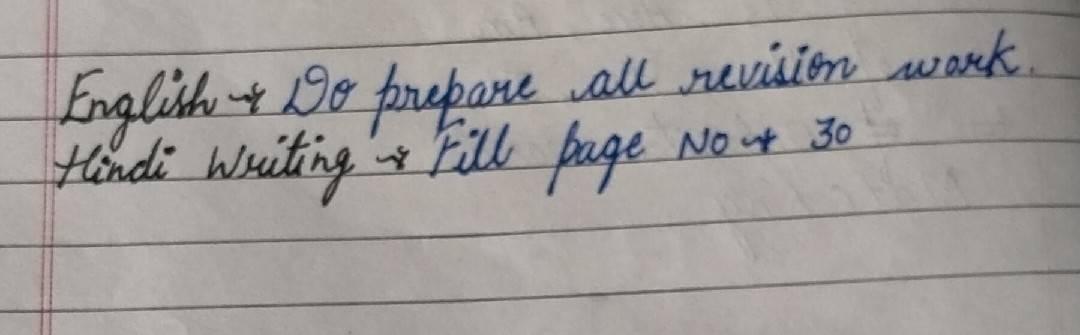 English → Do prepare all revision work.
Hindi Writing → Fill page No → 30